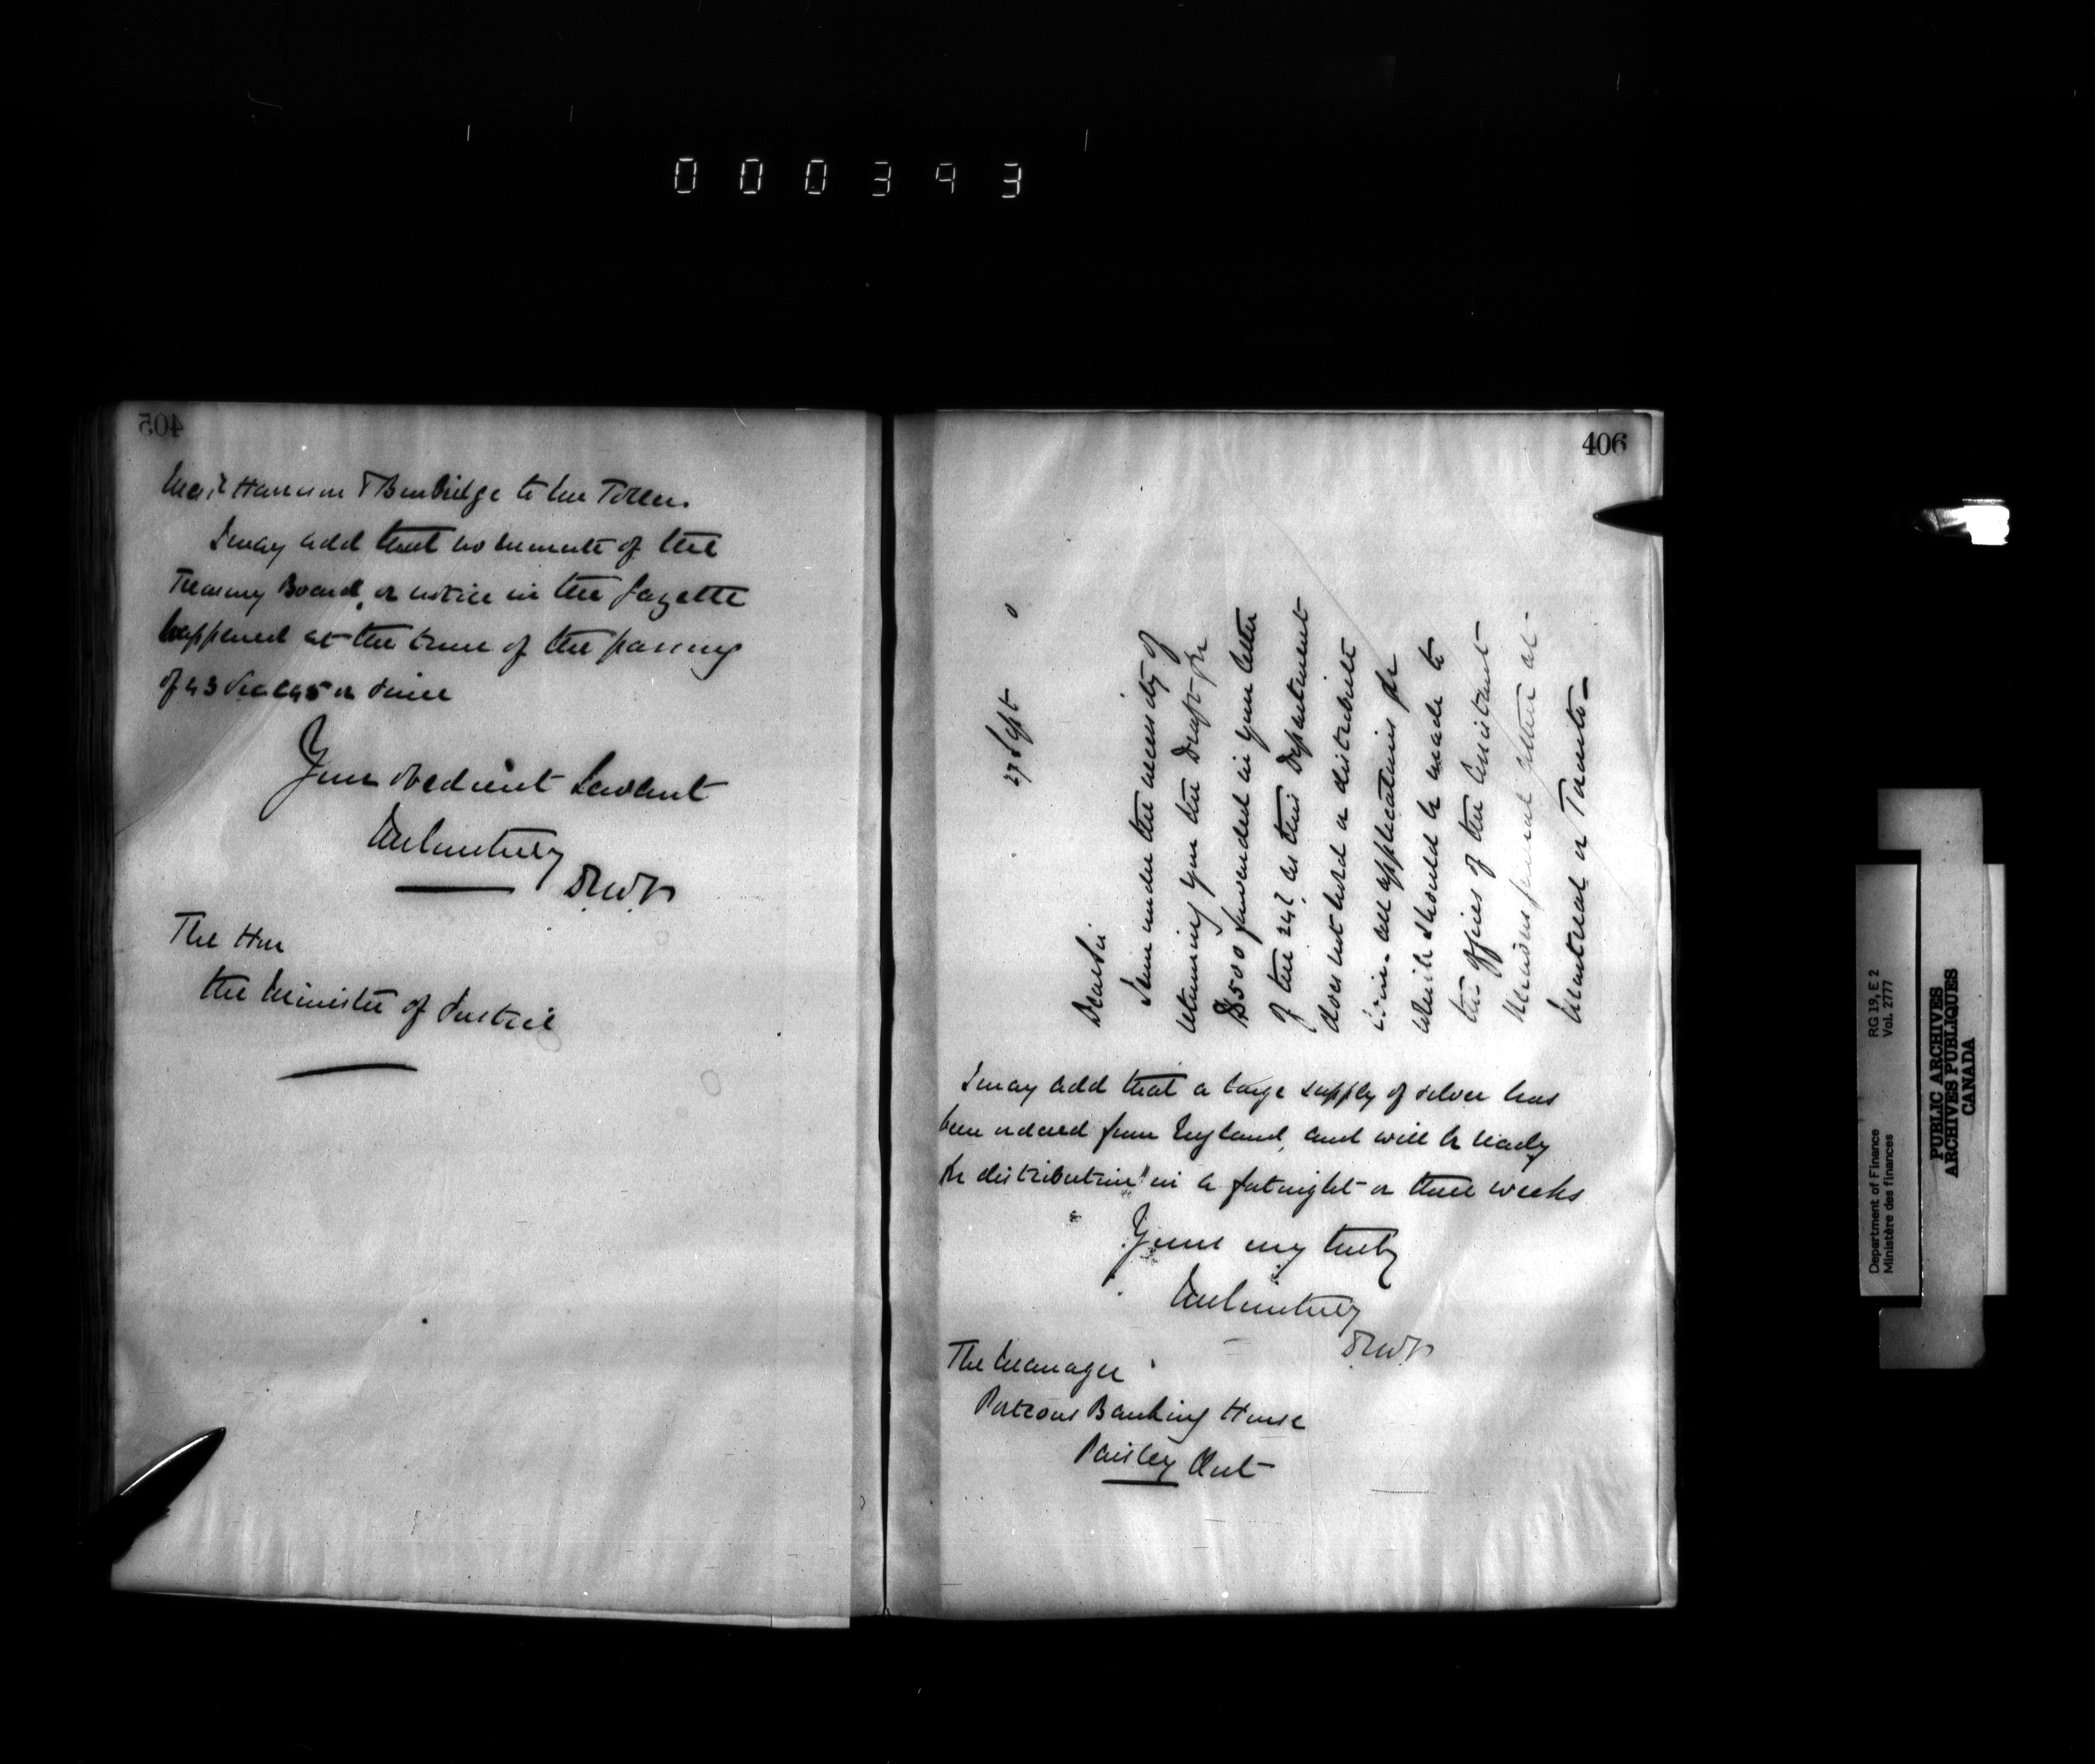 000393
405
Messrs Harrison & Burbidge to Mr Toller.
I may add that no minute of the
Treasury Board, or notice in the Gazette
happened at the time of the passing
of 43 Vic or since
Your obedient Servant
JMCourtney
D.M.F.
The Hon
the Minister of Justice
406
27 Sept
Dear Sir
I am under the necessity of
returning you the Draft for
$500 forwarded in your letter
of the 24th as this Department
does not hold or distribute
coin. All applications for
which should be made to
the offices of the Assistant
Receivers General either at
Montreal or Toronto
I may add that a large supply of silver has
been ordered from England, and will be ready
for distribution in a fortnight or three weeks
Yours very truly
JMCourtney
D.M.F.
The Manager
Porteous Banking House
Paisley Ont
Department of Finance RG 19, E 2
Ministère des finances Vol. 2777
PUBLIC ARCHIVES
ARCHIVES PUBLIQUES
CANADA